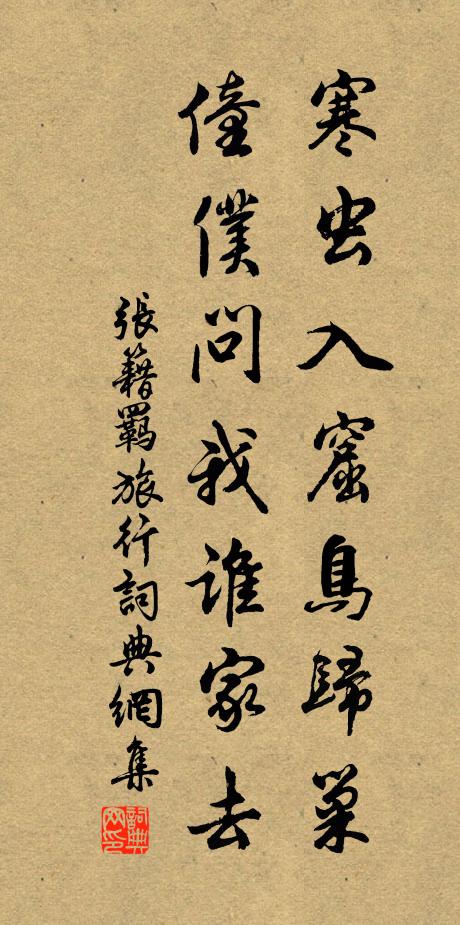 寒虫入窟鳥歸巢
僮僕問我誰家去
張籍羈旅行詞典網集
詞典網印